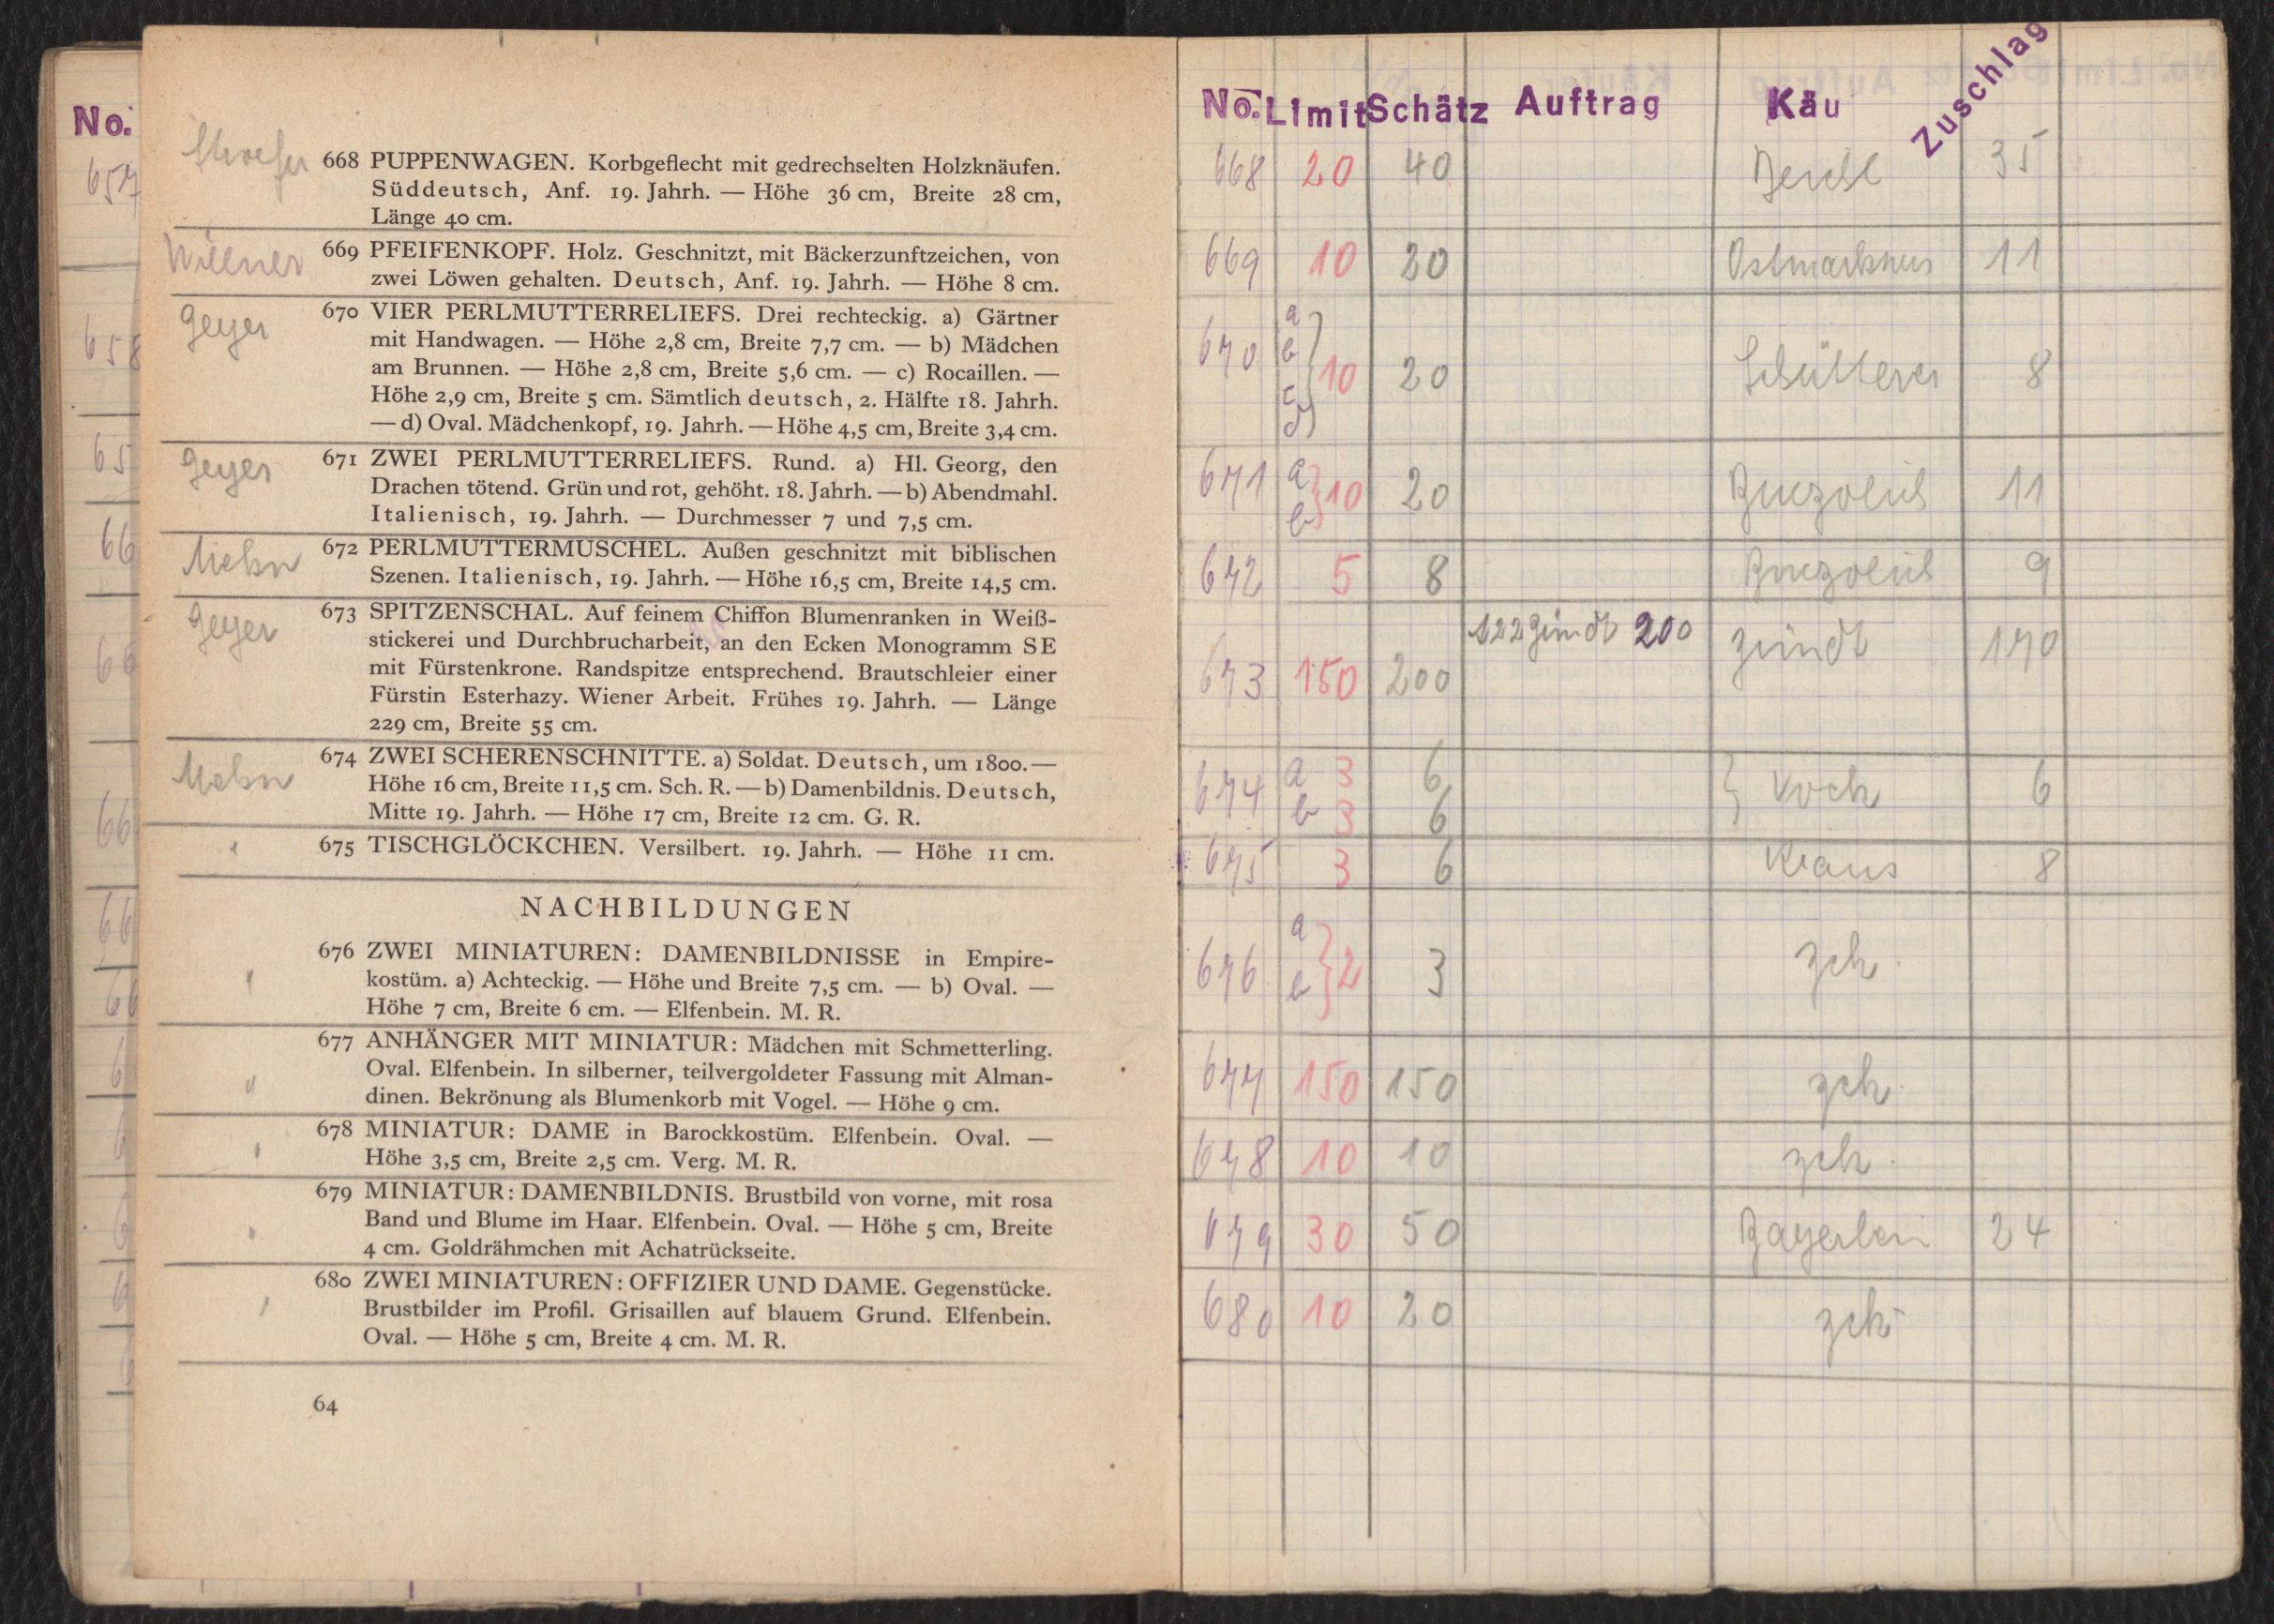 No.
657
658
65
66
66
66
66
668 PUPPENWAGEN. Korbgeflecht mit gedrechselten Holzknäufen.
Süddeutsch, Anf. 19. Jahrh. — Höhe 36 cm, Breite 28 cm,
Länge 40 cm.
Willner 669 PFEIFENKOPF. Holz. Geschnitzt, mit Bäckerzunftzeichen, von
zwei Löwen gehalten. Deutsch, Anf. 19. Jahrh. — Höhe 8 cm.
Geyer 670 VIER PERLMUTTERRELIEFS. Drei rechteckig. a) Gärtner
mit Handwagen. — Höhe 2,8 cm, Breite 7,7 cm. — b) Mädchen
am Brunnen. — Höhe 2,8 cm, Breite 5,6 cm. — c) Rocaillen. —
Höhe 2,9 cm, Breite 5 cm. Sämtlich deutsch, 2. Hälfte 18. Jahrh.
— d) Oval. Mädchenkopf, 19. Jahrh. — Höhe 4,5 cm, Breite 3,4 cm.
Geyer 671 ZWEI PERLMUTTERRELIEFS. Rund. a) Hl. Georg, den
Drachen tötend. Grün und rot, gehöht. 18. Jahrh. — b) Abendmahl.
Italienisch, 19. Jahrh. — Durchmesser 7 und 7,5 cm.
672 PERLMUTTERMUSCHEL. Außen geschnitzt mit biblischen
Szenen. Italienisch, 19. Jahrh. — Höhe 16,5 cm, Breite 14,5 cm.
Geyer 673 SPITZENSCHAL. Auf feinem Chiffon Blumenranken in Weiß-
stickerei und Durchbrucharbeit, an den Ecken Monogramm SE
mit Fürstenkrone. Randspitze entsprechend. Brautschleier einer
Fürstin Esterhazy. Wiener Arbeit. Frühes 19. Jahrh. — Länge
229 cm, Breite 55 cm.
674 ZWEI SCHERENSCHNITTE. a) Soldat. Deutsch, um 1800. —
Höhe 16 cm, Breite 11,5 cm. Sch. R. — b) Damenbildnis. Deutsch,
Mitte 19. Jahrh. — Höhe 17 cm, Breite 12 cm. G. R.
" 675 TISCHGLÖCKCHEN. Versilbert. 19. Jahrh. — Höhe 11 cm.
NACHBILDUNGEN
" 676 ZWEI MINIATUREN: DAMENBILDNISSE in Empire-
kostüm. a) Achteckig. — Höhe und Breite 7,5 cm. — b) Oval. —
Höhe 7 cm, Breite 6 cm. — Elfenbein. M. R.
" 677 ANHÄNGER MIT MINIATUR: Mädchen mit Schmetterling.
Oval. Elfenbein. In silberner, teilvergoldeter Fassung mit Alman-
dinen. Bekrönung als Blumenkorb mit Vogel. — Höhe 9 cm.
" 678 MINIATUR: DAME in Barockkostüm. Elfenbein. Oval. —
Höhe 3,5 cm, Breite 2,5 cm. Verg. M. R.
" 679 MINIATUR: DAMENBILDNIS. Brustbild von vorne, mit rosa
Band und Blume im Haar. Elfenbein. Oval. — Höhe 5 cm, Breite
4 cm. Goldrähmchen mit Achatrückseite.
" 680 ZWEI MINIATUREN: OFFIZIER UND DAME. Gegenstücke.
Brustbilder im Profil. Grisaillen auf blauem Grund. Elfenbein.
Oval. — Höhe 5 cm, Breite 4 cm. M. R.
64
No. Limit Schätz Auftrag Käu Zuschlag
668 20 40 35
669 10 20 11
670 a b c d } 10 20 8
671 a b } 10 20 11
672 5 8 9
673 150 200 122 Zündt 200 Zündt 170
674 a 3 6 } Koch 6
b 3 6
675 3 6 Kraus 8
676 a b } 2 3 zck.
677 150 150 zck.
678 10 10 zck.
679 30 50 Bayerlein 24
680 10 20 zck